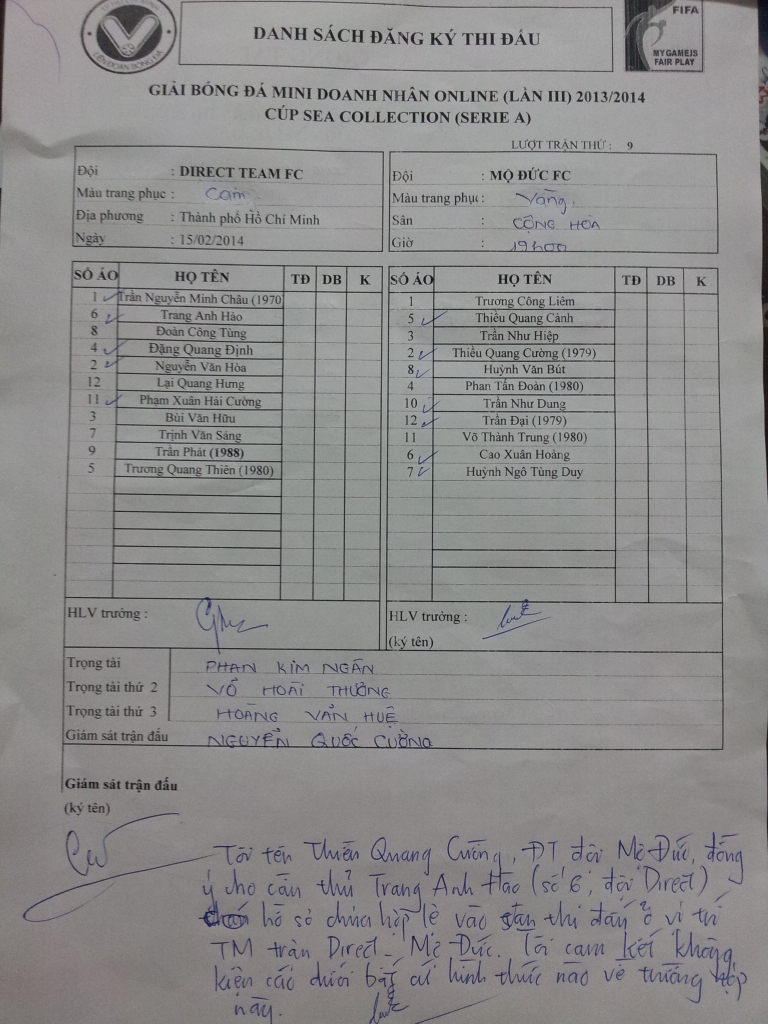 LIÊN ĐOÀN BÓNG ĐÁ
DANH SÁCH ĐĂNG KÝ THI ĐẤU
FIFA
MY GAME IS
FAIR PLAY
GIẢI BÓNG ĐÁ MINI DOANH NHÂN ONLINE (LẦN III) 2013/2014
CÚP SEA COLLECTION (SERIE A)
LƯỢT TRẬN THỨ : 9
Đội : DIRECT TEAM FC
Màu trang phục : Cam
Địa phương : Thành phố Hồ Chí Minh
Ngày : 15/02/2014
Đội : MỘ ĐỨC FC
Màu trang phục : Vàng
Sân : CỘNG HÒA
Giờ : 19h00
SỐ ÁO HỌ TÊN TĐ DB K
1 Trần Nguyễn Minh Châu (1970
6 Trang Anh Hào
8 Đoàn Công Tùng
4 Đặng Quang Định
2 Nguyễn Văn Hòa
12 Lại Quang Hưng
11 Phạm Xuân Hải Cường
3 Bùi Văn Hữu
7 Trịnh Văn Sáng
9 Trần Phát (1988)
5 Trương Quang Thiên (1980)
HLV trưởng :
SỐ ÁO HỌ TÊN TĐ DB K
1 Trương Công Liêm
5 Thiều Quang Cảnh
3 Trần Như Hiệp
2 Thiều Quang Cường (1979)
8 Huỳnh Văn Bút
4 Phan Tấn Đoàn (1980)
10 Trần Như Dung
12 Trần Đại (1979)
11 Võ Thành Trung (1980)
6 Cao Xuân Hoàng
7 Huỳnh Ngô Tùng Duy
HLV trưởng :
(ký tên)
Trọng tài PHAN KIM NGÂN
Trọng tài thứ 2 VÕ HOÀI THƯƠNG
Trọng tài thứ 3 HOÀNG VĂN HUỆ
Giám sát trận đấu NGUYỄN QUỐC CƯỜNG
Giám sát trận đấu
(ký tên)
Tôi tên Thiều Quang Cường, ĐT đội Mộ Đức, đồng
ý cho cầu thủ Trang Anh Hào (số 6, đội Direct)
hồ sơ chưa hợp lệ vào sân thi đấu ở vị trí
TM trận Direct - Mộ Đức. Tôi cam kết không
kiện cáo dưới bất cứ hình thức nào về trường hợp
này.